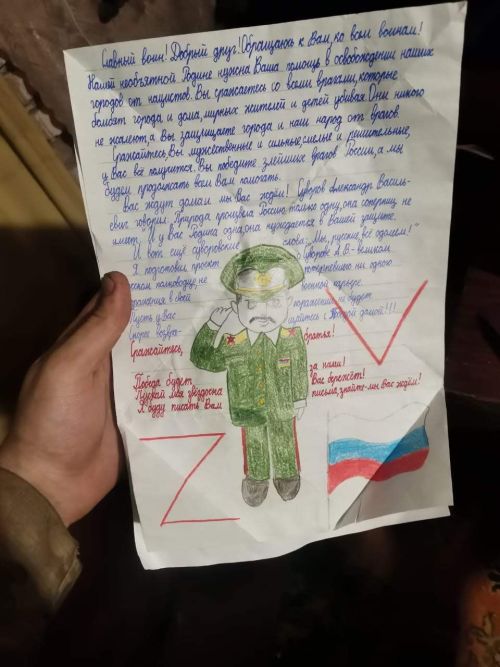 Славный воин! Добрый друг! Обращаюсь к Вам, ко всем воинам!
Нашей необъятной Родине нужна Ваша помощь в освобождении наших
городов от нацистов. Вы сражаетесь со всеми врагами, которые
бомбят города и дома, мирных жителей и детей убивая. Они никого
не жалеют, а Вы защищаете города и наш народ от врагов.
Сражайтесь, Вы мужественные и сильные, смелые и решительные,
у Вас всё получится. Вы победите злейших врагов России, а мы
будем продолжать всем Вам помогать.
Вас ждут дома мы Вас ждём! Суворов Александр Василь-
евич говорил "Природа произвела Россию только одну, она соперниц не
имеет". И у Вас Родина одна, она нуждается в Вашей защите.
И вот ещё суворовские слова: "Мы, русские, всё одолеем!"
Я подготовил проект о Суворове А.В-великом
ском полководце, не потерпевшем ни одного
поражения в своей военной карьере.
Пусть у Вас поражений не будет
скорее возвра- щайтесь с домой!!!
Сражайтесь, братья!
Победа будет за нами!
Пускай моя звёздочка Вас бережёт!
Я буду писать Вам письма, знайте-мы Вас ждём!
V
Z